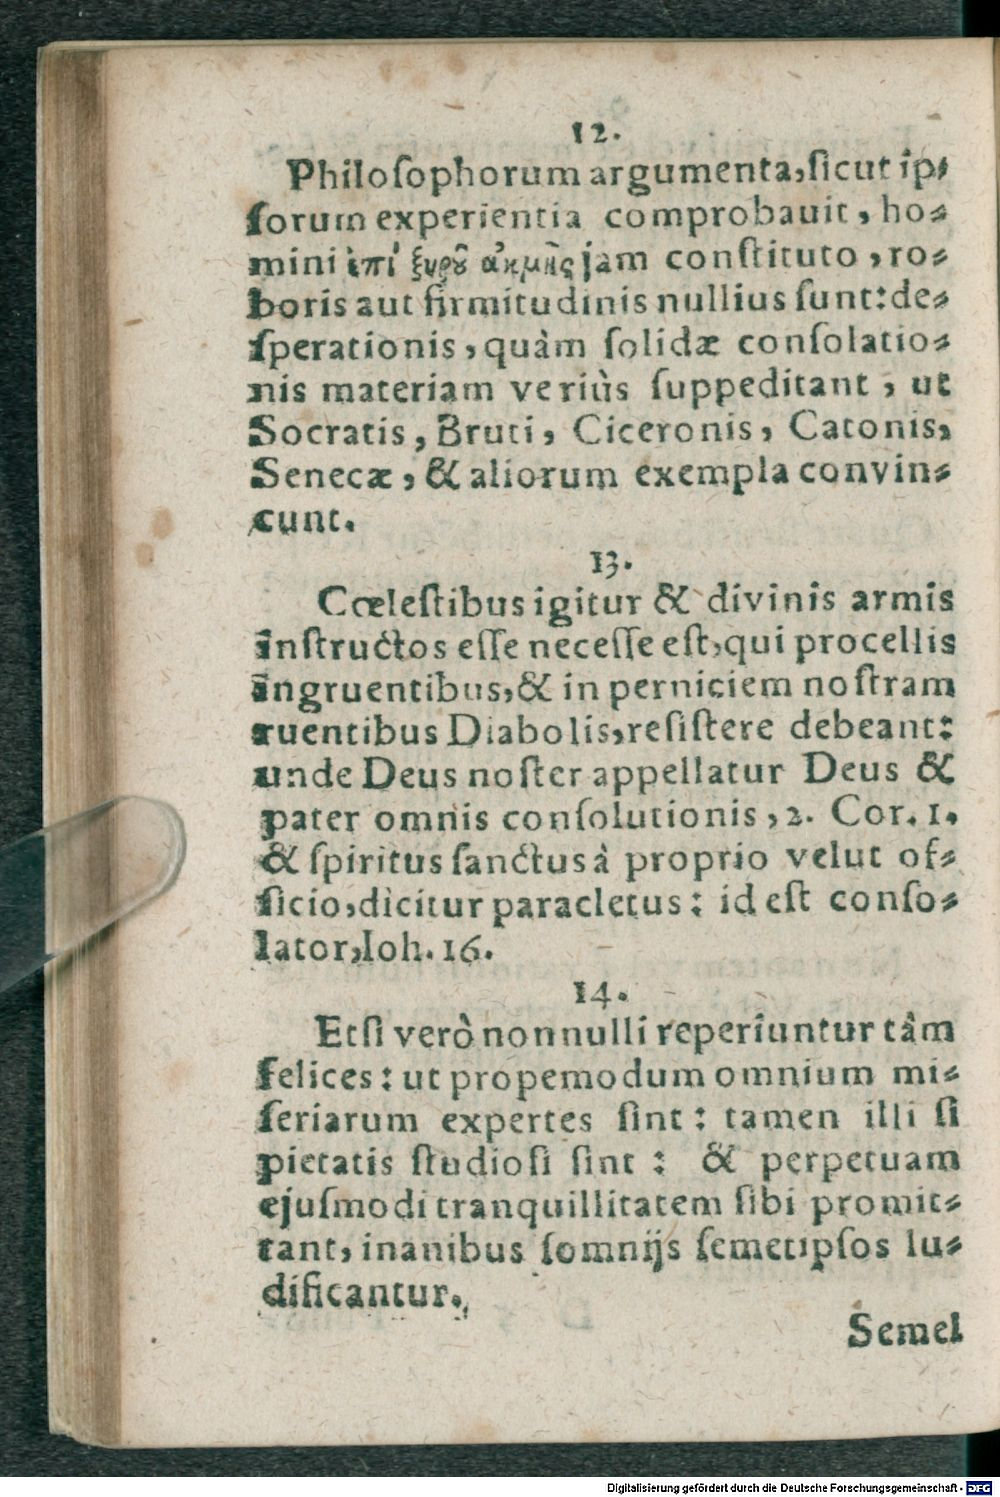 12.
Philoſophorum argumenta, ſicut ip-
ſorum experientia comprobauit, ho-
mini ἐπὶ ξυροῦ ἀκμῆς jam conſtituto, ro-
boris aut firmitudinis nullius ſunt: de-
ſperationis, quàm ſolidæ conſolatio-
nis materiam veriùs ſuppeditant, ut
Socratis, Bruti, Ciceronis, Catonis,
Senecæ, & aliorum exempla convin-
cunt.
13.
Cœleſtibus igitur & divinis armis
inſtructos eſſe neceſſe eſt, qui procellis
ingruentibus, & in perniciem noſtram
ruentibus Diabolis, reſiſtere debeant:
unde Deus noſter appellatur Deus &
pater omnis conſolutionis, 2. Cor. 1.
& ſpiritus ſanctus à proprio velut of-
ficio, dicitur paracletus: id eſt conſo-
lator, Ioh. 16.
14.
Etſi verò nonnulli reperiuntur tâm
felices: ut propemodum omnium mi-
ſeriarum expertes ſint: tamen illi ſi
pietatis ſtudioſi ſint: & perpetuam
ejuſmodi tranquillitatem ſibi promit-
tant, inanibus ſomnijs ſemetipſos lu-
dificantur.
Semel
Digitalisierung gefördert durch die Deutsche Forschungsgemeinschaft - DFG